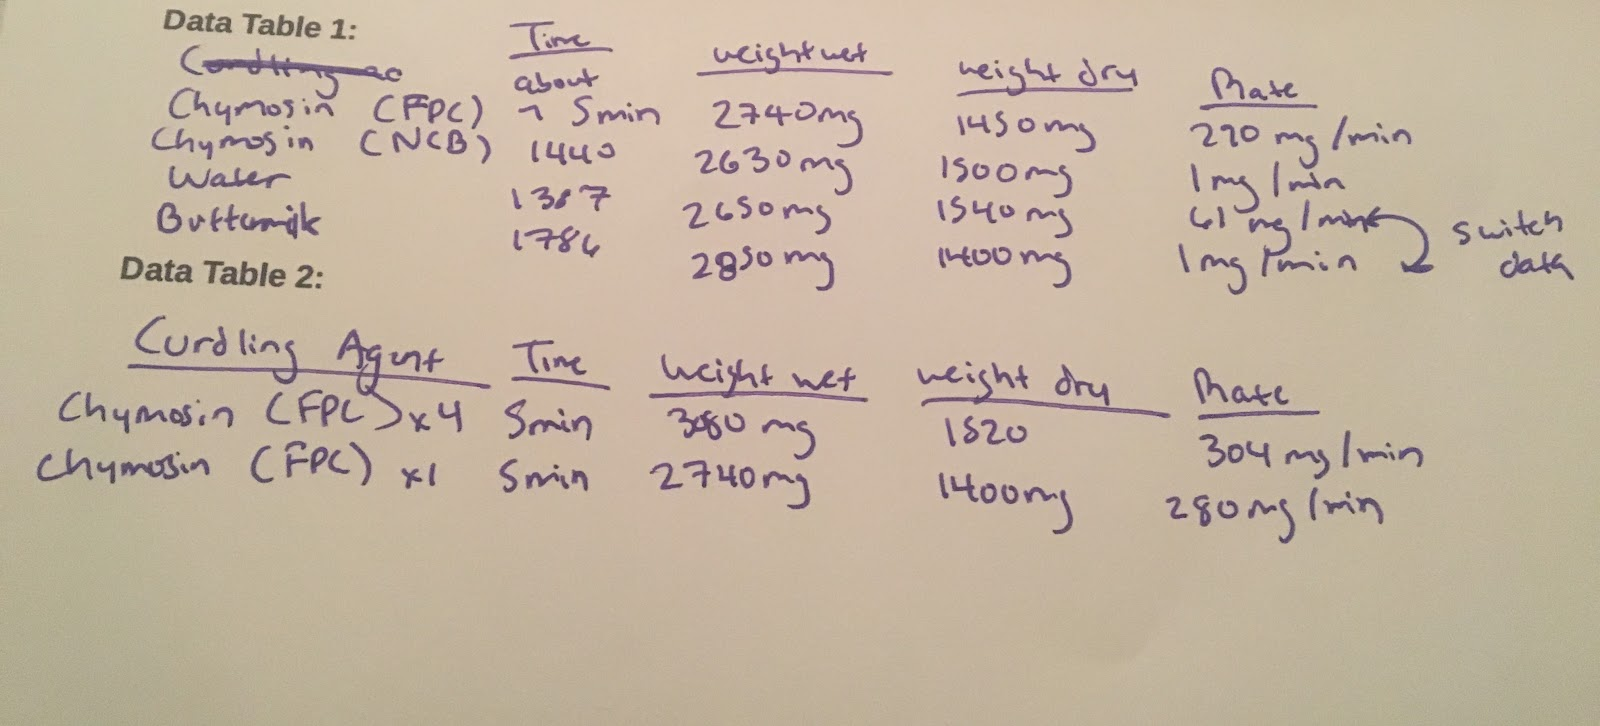 Data Table 1:
Time weight wet weight dry Rate
Curdling ag
about
Chymosin (FPC) ~ 5min 2740mg 1450mg 290 mg/min
Chymosin (NCB) 1440 2630mg 1500mg 1mg/min
Water 1387 2650mg 1540mg mg/min
Buttermilk 1786 2850mg 1400mg 1mg/min
switch
data
Data Table 2:
Curdling Agent Time Weight wet weight dry Rate
Chymosin (FPC) x4 5min 3080 mg 1520 304mg/min
Chymosin (FPC) x1 5min 2740mg 1400mg 280mg/min